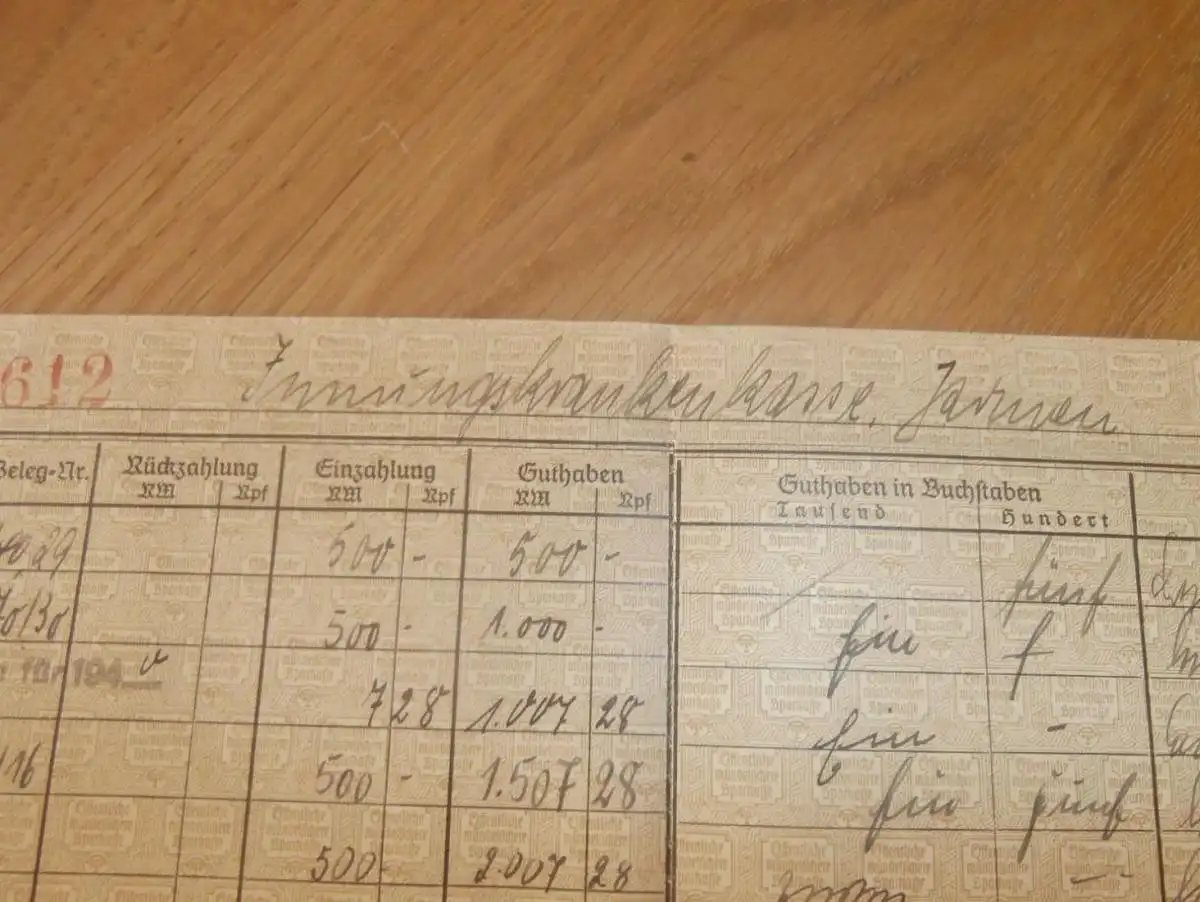 612 Innungskrankenkasse, Jarmen
Beleg-Nr. Rückzahlung Einzahlung Guthaben Guthaben in Buchstaben
RM Rpf RM Rpf RM Rpf Tausend Hundert
29 500 - 500 - fünf
70/30 500 - 1.000 - Ein
für 194 7 28 1.007 28 Ein -
116 500 - 1.507 28 Ein fünf
500 - 2.007 28 —